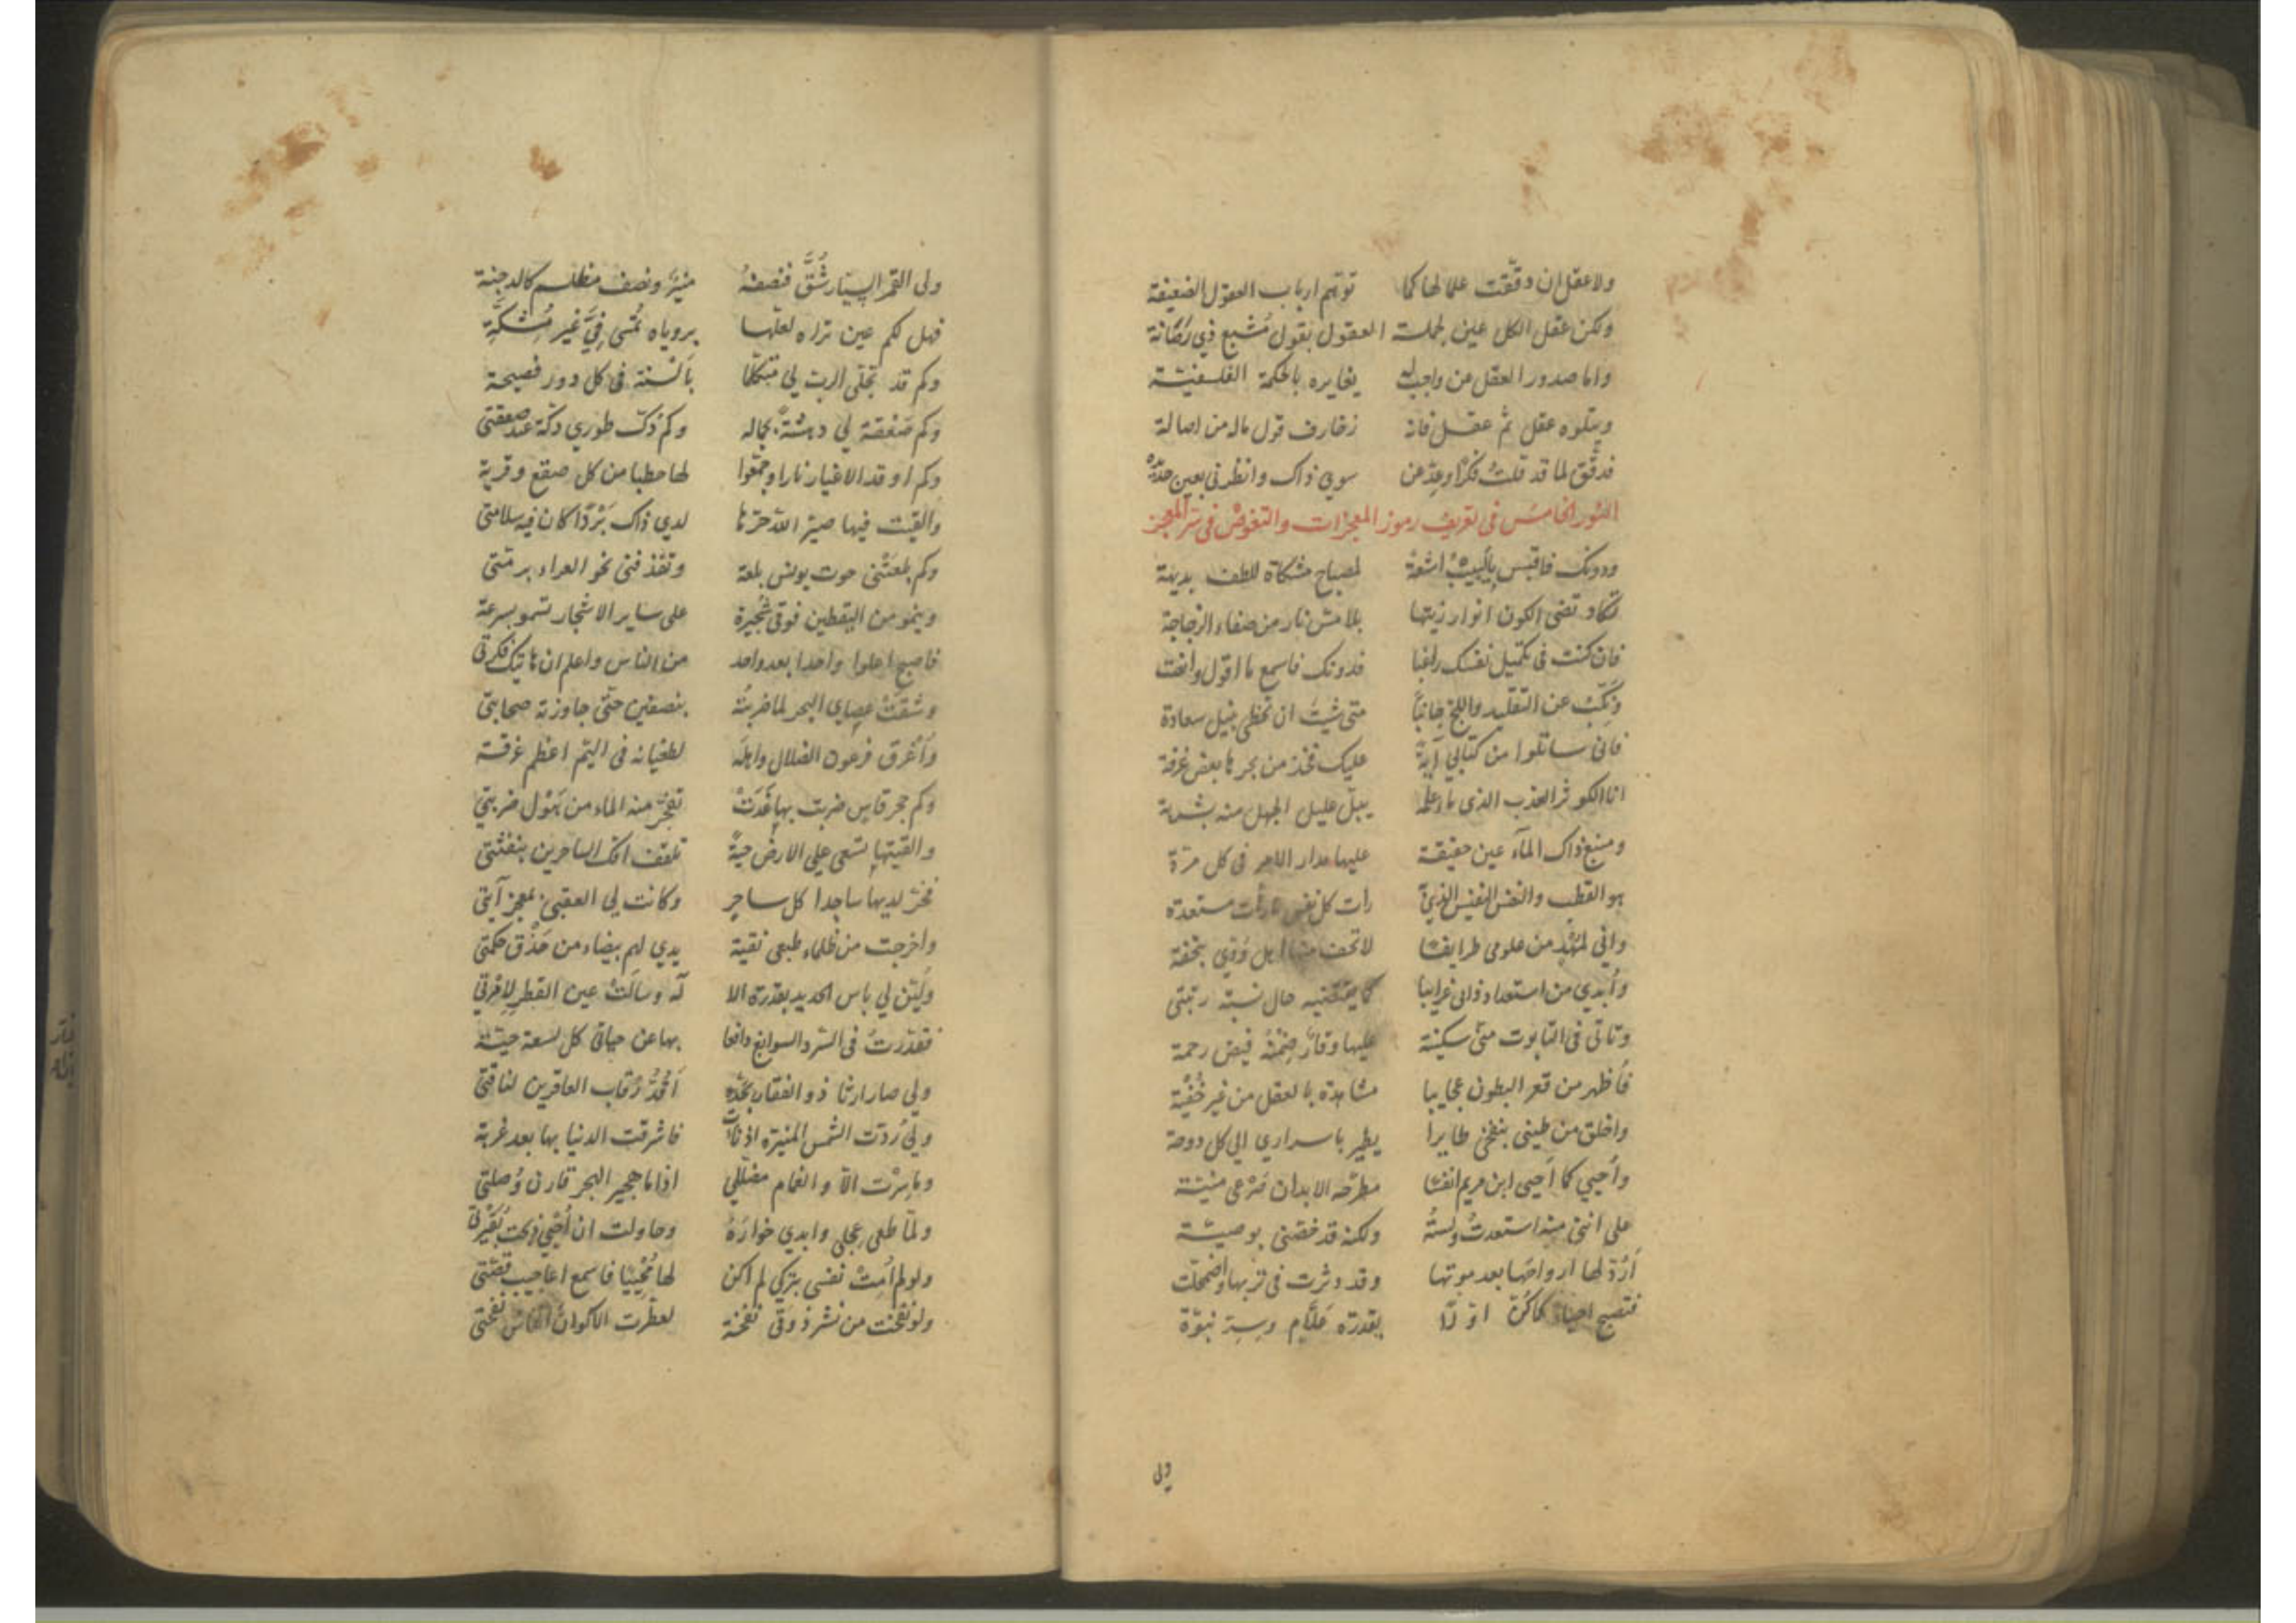 ولا عقل ان دققت علما لها كما توهم ارباب العقول الضعيفة
ولكن عقل الكل عين لجملة العقول بقول مشبع ذي ركانة
واما صدور العقل من واجب له يغايره بالحكمة الفلسفية
ويتلوه عقل ثم عقل فانه زخارف قول ماله من اصالة
فدقق لما قد قلت فكرا وعد عن سوي ذاك وانظرني بعين حدة
النور الخامس في تعريف رموز المعجزات والتغوض في سر المعجز
ودونك فاقتبس يا لبيب اشعة لمصباح مشكاة للطف بديهة
تكاد تضى الكون انوار زيتها بلا مس نار من صفاء الزجاجة
فان كنت في تكميل نفسك راغبا فدونك فاسمع ما اقول وانصت
ونكب عن التقليد واللج جانبا متى شيت ان تحظى بنيل سعادة
فاني ساتلوا من كتابي آية عليك فخذ من بحرها بعض غرفة
انا الكوثر العذب الذي ماء علمه يبل عليل الجهل منه بشربة
ومنبع ذاك الماء عين حقيقة عليها مدار الامر في كل مرة
هو القطب والنفس النفيس الذي رات كل نفس مستعدة
واني لمهد من علومي طرايفا لاتحف منها اهل ذوقي بتحفة
وأبدي من استعداد ذاتي غرايبا كما يقتضيه حال نسبة رتبتي
وتاتي في التابوت مني سكينة عليها وقار ضمنه فيض رحمة
فأظهر من قعر البطون عجايبا مشاهدة بالعقل من غير خفية
واخلق من طيني بنفخي طايرا يطير باسراري الي كل دوحة
وأحيي كما أحيى ابن مريم انفسا مطرحه الابدان صرعى منيتة
على انني منه استعدت ولسته ولكنه قد خصني بوصية
أرد لها ارواحها بعد موتها وقد دثرت في تربها واضمحلت
فتصبح احياء كاكرة اولا بقدرة علام وسر نبوة
ولى
ولى القمر السيار شق فنصفه منير ونصف مظلم كالدجنة
فهل لكم عين تراه لعلها بروياه تمسى في غير مشكة
وكم قد تجلى الرب لي متكلما بألسنة في كل دور فصيحة
وكم صعقة لي دهشة بجماله وكم دك طوري دكة عند صعقتي
وكم اوقد الاغيار نارا وجمعوا لها حطبا من كل صقع وقرية
والقيت فيها صير الله حرها لدي ذاك بردا كان فيه سلامتى
وكم بلعتني حوت يونس بلعة وتقذفني نحو العراء برمتي
وينمو من اليقطين فوقي شجيرة على ساير الاشجار تسمو بسرعة
فاصبح اعلوا واحدا بعد واحد من الناس واعلم ان هاتيك فكرتي
وشقت عصاي البحر لما ضربته بنصفين حتى جاوزته صحابتي
وأغرق فرعون الضلال واهله لطغيانه في اليم اعظم غرقة
وكم حجر قاس ضربت بها غدت تفجر منه الماء من هول ضربتي
والقيتها تسعى على الارض حية تلقف افك الساحرين بنفثتي
فخر لديها ساجدا كل ساحر وكانت لي العقبى بمعجز آيتي
واخرجت من ظلماء طبعي نقية يدي لهم بيضاء من حذق حكمتي
ولين لي باس الحديد بقدرة الا له وسالت عين القطر لامرتي
فقدرت في السرد السوابغ دافعا بها عن حياتي كل لسعة حية
ولي صار ارثا ذو الفقار بحده أقد رقاب العاقرين لناقتي
ولي ردت الشمس المنيرة اذ فاشرقت الدنيا بها بعد غربة
وما سرت الا والغمام مظللي اذا ما هجير البحر قارن وصلتي
ولما طغى عجلي وابدي خواره وحاولت ان أحيي ذبحت بقيرتي
ولو لم أمت نفسي بتركي لم اكن لها محييا فاسمع اعاجيب قصتي
ولو نفخت من نشر ذوقي نفخة لعطرت الاكوان انفاس نفختي